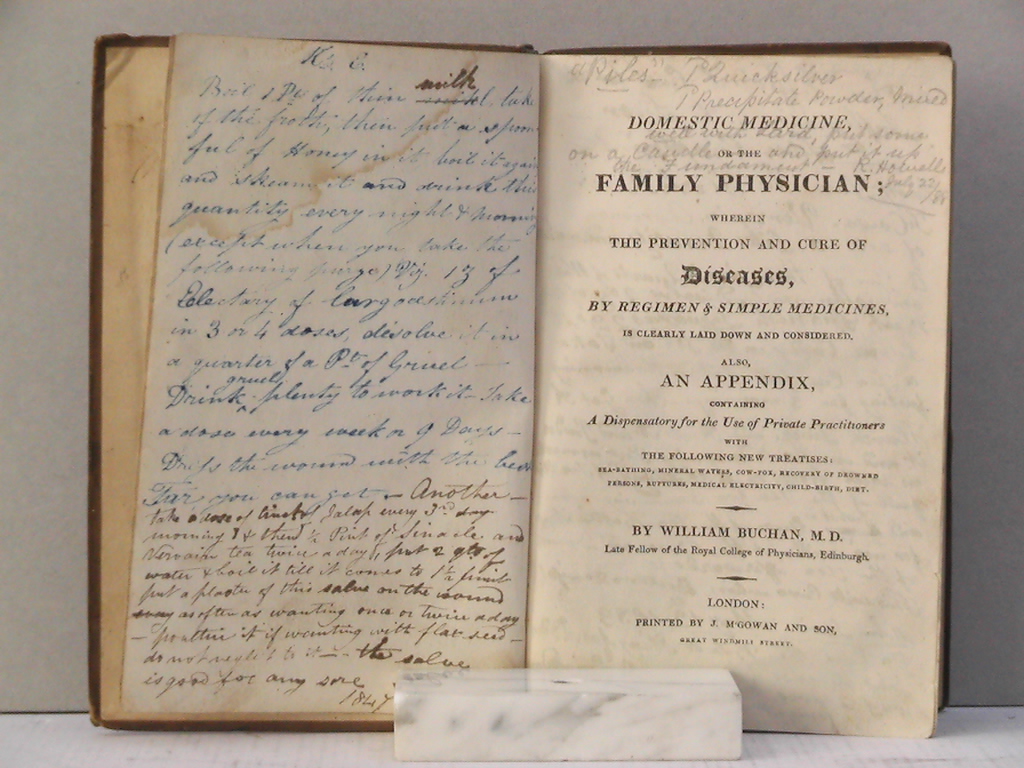 Boil 1 Pt of thin milk take
of the froth, then put a spoon
ful of Honey in it boil it again
and skeam it and drink this
quantity every night & morning
(except when you take the
following purge) Viz. 1 ℥ of
Electary of
in 3 or 4 doses, disolve it in
a quarter of a Pt of Gruel —
Drink gruel plenty to work it — Take
a dose every week or 9 Days —
Dress the wound with the best
Tar you can get — Another —
take a dose of tinct of Jalap every 3rd day
morning & then ½ Pint of and
Vervain tea twice a day, put 2 qts of
water & boil it till it comes to 1½
put a plaster of this salve on the wound
as often as wanting once or twice a day
— poultice it if wanting with flax seed —
do not neglect to it — the salve
is good for any sore
1847
"Piles" Quicksilver
Precipitate Powder, mixed
well with Lard, put some
on a Candle and put it up
the Fundament — R. Howell
July 22/
DOMESTIC MEDICINE,
OR THE
FAMILY PHYSICIAN;
WHEREIN
THE PREVENTION AND CURE OF
Diseases,
BY REGIMEN & SIMPLE MEDICINES,
IS CLEARLY LAID DOWN AND CONSIDERED.
ALSO,
AN APPENDIX,
CONTAINING
A Dispensatory for the Use of Private Practitioners
WITH
THE FOLLOWING NEW TREATISES:
SEA-BATHING, MINERAL WATERS, COW-POX, RECOVERY OF DROWNED
PERSONS, RUPTURES, MEDICAL ELECTRICITY, CHILD-BIRTH, DIET.
BY WILLIAM BUCHAN, M.D.
Late Fellow of the Royal College of Physicians, Edinburgh.
LONDON:
PRINTED BY J. M'GOWAN AND SON,
GREAT WINDMILL STREET.